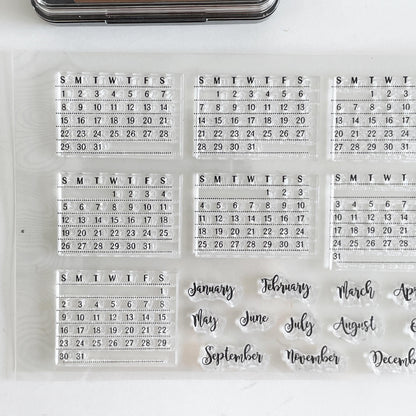 S M T W T F S
1 2 3 4 5 6 7
8 9 10 11 12 13 14
15 16 17 18 19 20 21
22 23 24 25 26 27 28
29 30 31
S M T W T F S
1 2 3 4 5 6
7 8 9 10 11 12 13
14 15 16 17 18 19 20
21 22 23 24 25 26 27
28 29 30 31
S M T W
1 2
6 7 8 9
13 14 15 16
20 21 22 23
27 28 29 30
S M T W T F S
1 2 3 4
5 6 7 8 9 10 11
12 13 14 15 16 17 18
19 20 21 22 23 24 25
26 27 28 29 30 31
S M T W T F S
1 2 3
4 5 6 7 8 9 10
11 12 13 14 15 16 17
18 19 20 21 22 23 24
25 26 27 28 29 30 31
S M T W
3 4 5 6
10 11 12 13
17 18 19 20
24 25 26 27
31
S M T W T F S
1
2 3 4 5 6 7 8
9 10 11 12 13 14 15
16 17 18 19 20 21 22
23 24 25 26 27 28 29
30 31
January February March Apr
May June July August
September November Decemb